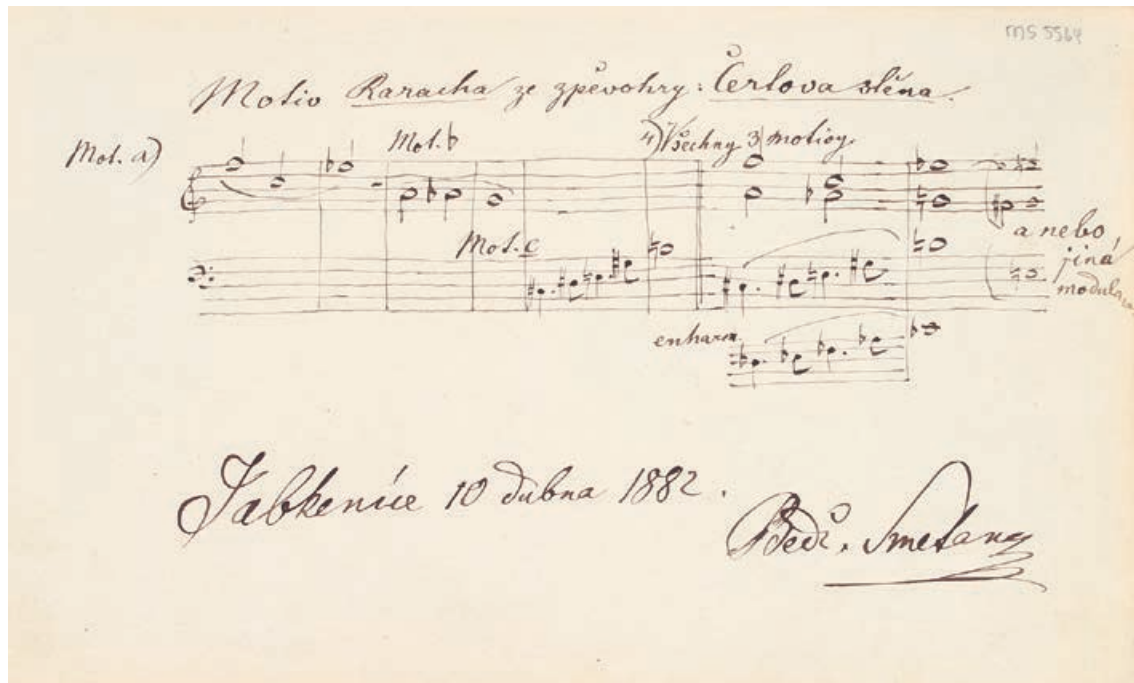 MS 5564
Motiv Raracha ze zpěvohry: Čertova stěna.
Mot. a)
Mot. b
4) Všechny 3 motivy
Mot. c
a nebo
jiná
enharm.
Jabkenice 10 dubna 1882.
Bedř. Smetana